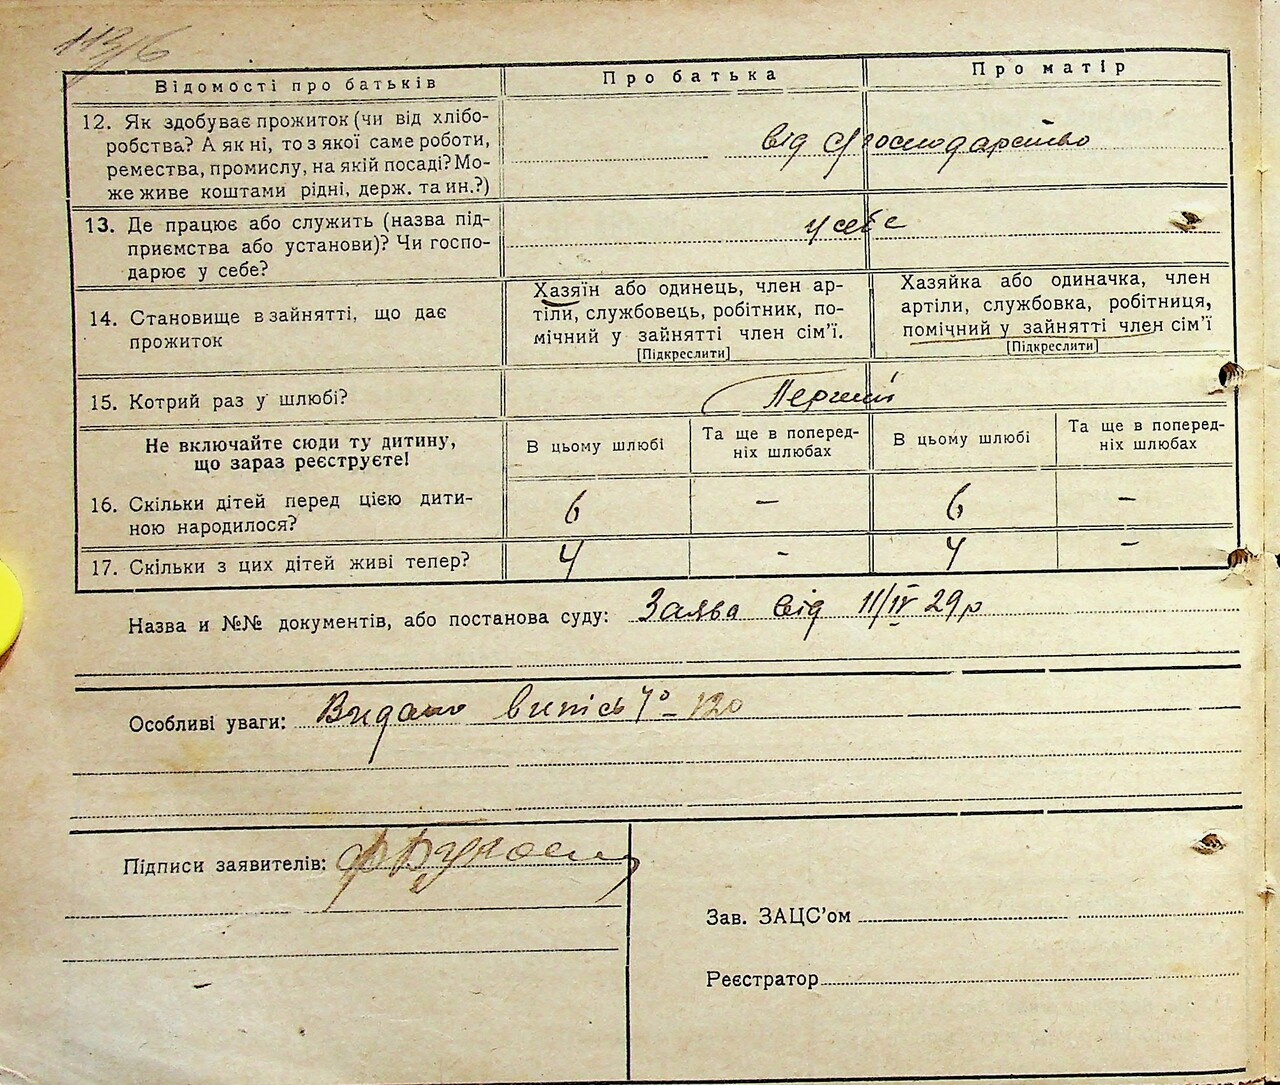 113/6
Відомості про батьків
Про батька
Про матір
12. Як здобуває прожиток (чи від хлібо-
робства? А як ні, то з якої саме роботи,
ремества, промислу, на якій посаді? Мо-
же живе коштами рідні, держ. та ин.?)
від с/господарство
13. Де працює або служить (назва під-
приємства або установи)? Чи госпо-
дарює у себе?
у себе
14. Становище в зайнятті, що дає
прожиток
Хазяїн або одинець, член ар-
тіли, службовець, робітник, по-
мічний у зайнятті член сім'ї.
[Підкреслити]
Хазяйка або одиначка, член
артіли, службовка, робітниця,
помічний у зайнятті член сім'ї
[Підкреслити]
15. Котрий раз у шлюбі?
Перший
Не включайте сюди ту дитину,
що зараз реєструєте!
В цьому шлюбі
Та ще в поперед-
ніх шлюбах
В цьому шлюбі
Та ще в поперед-
ніх шлюбах
16. Скільки дітей перед цією дити-
ною народилося?
6 – 6 –
17. Скільки з цих дітей живі тепер?
4 - 4 –
Назва и №№ документів, або постанова суду: Заява від 11/IV 29р
Особливі уваги: Видано випись № 120
Підписи заявителів:
Зав. ЗАЦС'ом
Реєстратор